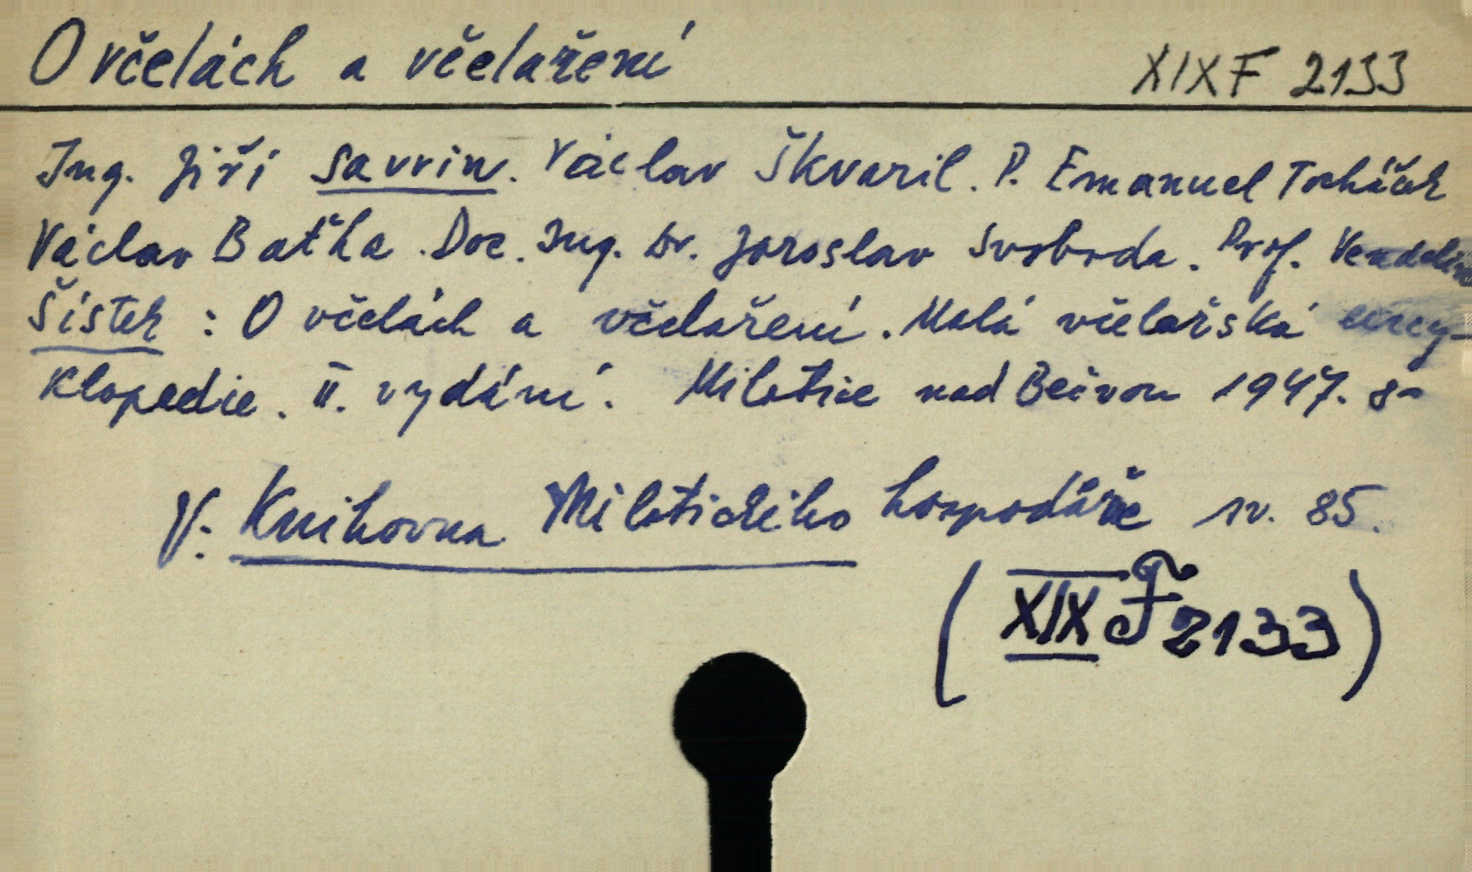 O včelách a včelaření XIX F 2133
Ing. Jiří Savvin. Václav Škvařil. P. Emanuel Tocháček
Václav Baťha. Doc. Ing. Dr. Jaroslav Svoboda. Prof. Vendelín
Šístek : O včelách a včelaření. Malá včelařská ency-
klopedie. II. vydání. Milotice nad Bečvou 1947. 8°
V: Knihovna Milotického hospodáře sv. 85.
(XIX F 2133)